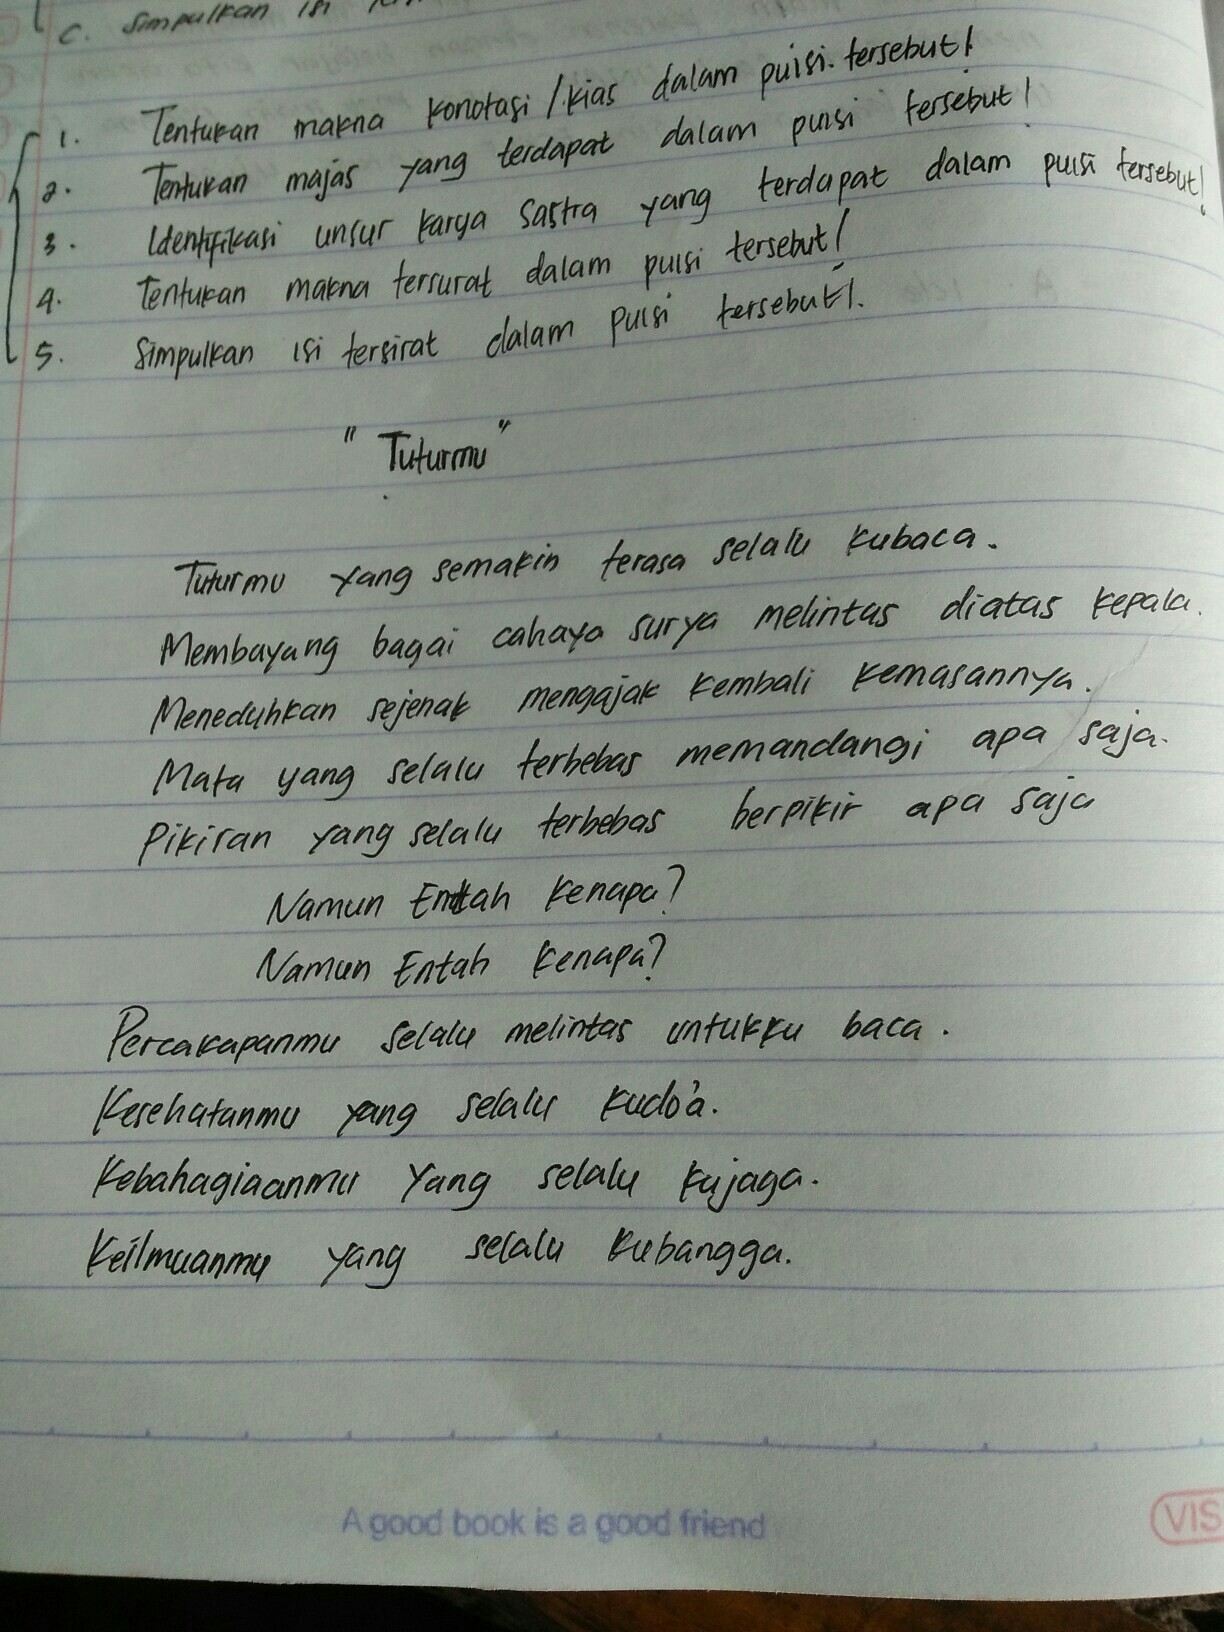 C. Simpulkan isi
1. Tentukan makna konotasi / kias dalam puisi tersebut!
2. Tentukan majas yang terdapat dalam puisi tersebut!
3. Identifikasi unsur karya sastra yang terdapat dalam puisi tersebut!
4. Tentukan makna tersurat dalam puisi tersebut!
5. Simpulkan isi tersirat dalam puisi tersebut!.
"Tuturmu"
Tuturmu yang semakin terasa selalu kubaca.
Membayang bagai cahaya surya melintas diatas kepala.
Meneduhkan sejenak mengajak kembali kemasannya.
Mata yang selalu terbebas memandangi apa saja.
Pikiran yang selalu terbebas berpikir apa saja
Namun Entah kenapa?
Namun Entah kenapa?
Percakapanmu selalu melintas untukku baca.
Kesehatanmu yang selalu kudo'a.
Kebahagiaanmu Yang selalu kujaga.
Keilmuanmu yang selalu kubangga.
A good book is a good friend
VIS